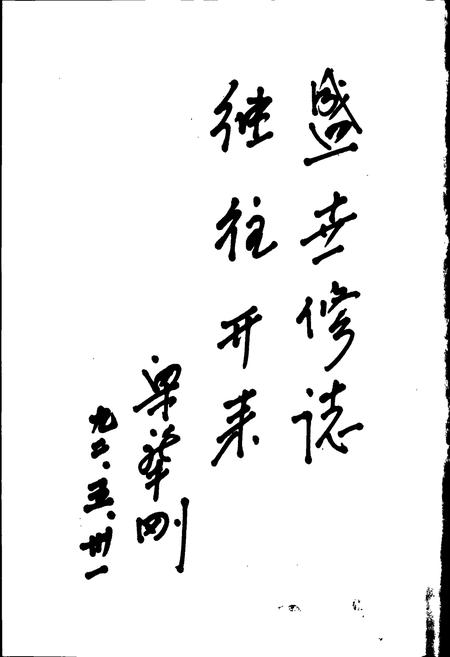 盛世修誌
继往开来
梁華剛
九二、五、卅一